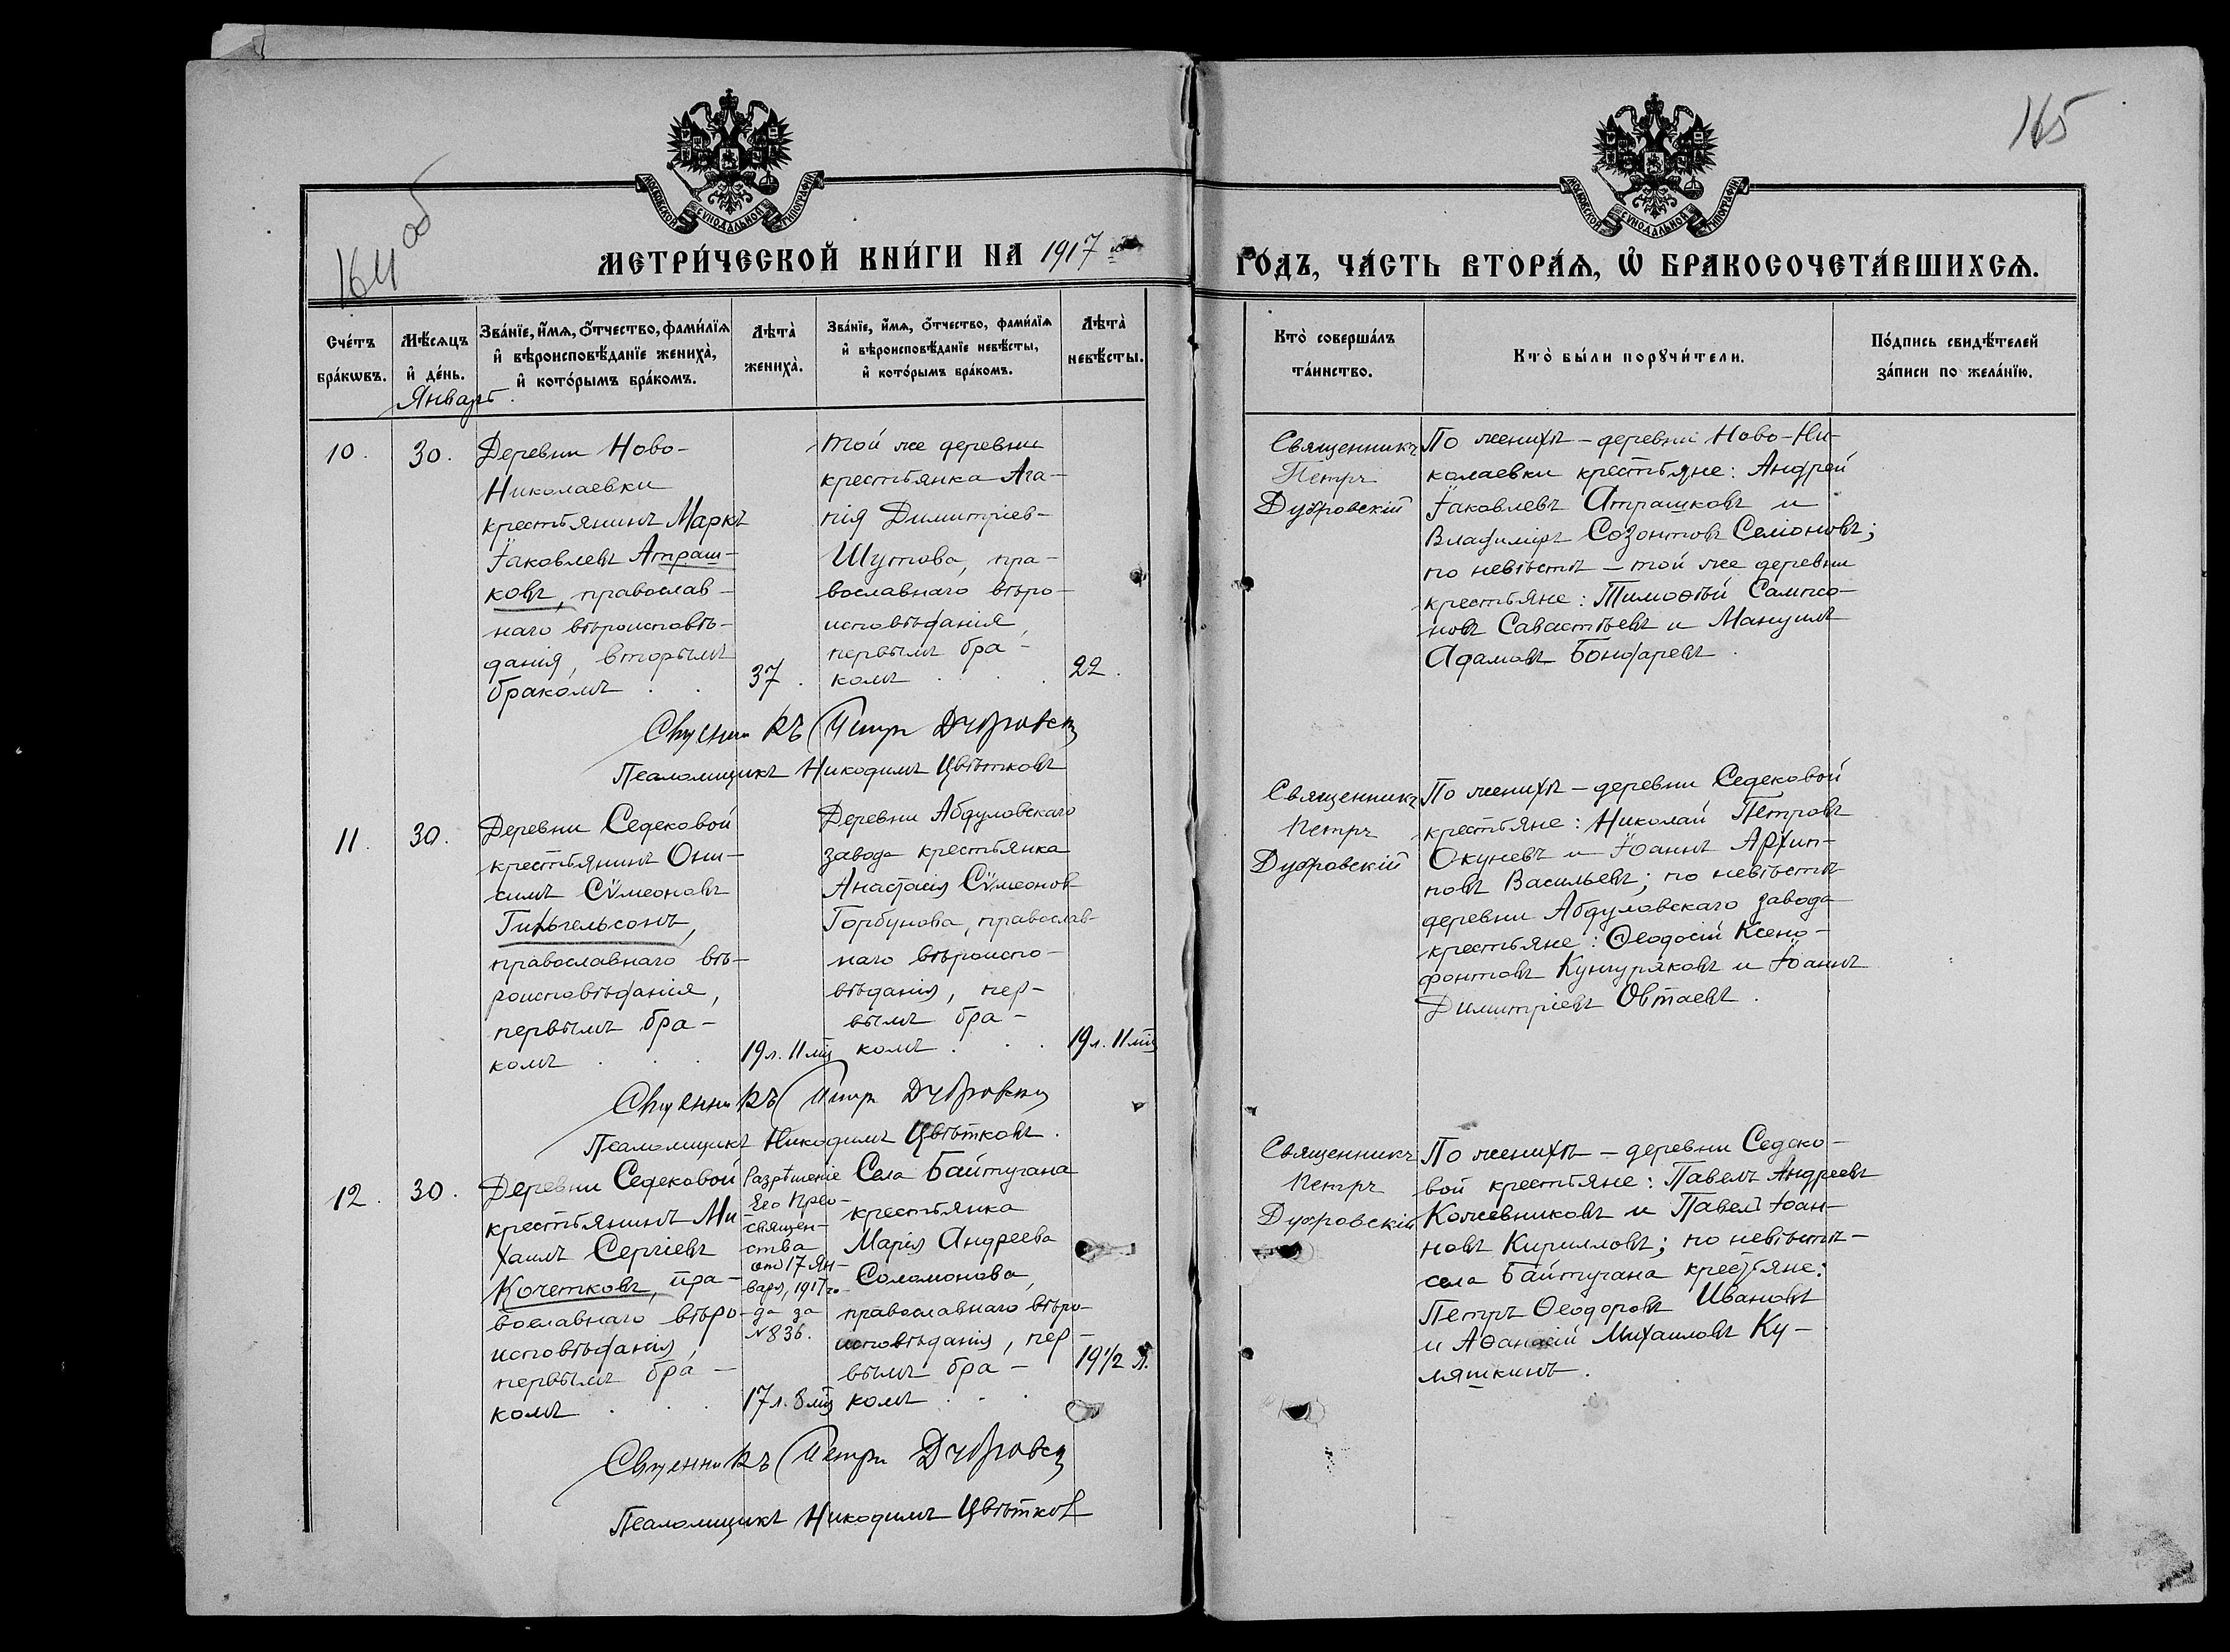 164 об
165
МОСКОВСКОЙ СѴНОДАЛЬНОЙ ТИПОГРАФІИ
МОСКОВСКОЙ СѴНОДАЛЬНОЙ ТИПОГРАФІИ
МЕТРИ́ЧЕСКОЙ КНИ́ГИ НА 1917
ГО́ДЪ, ЧА́СТЬ ВТОРА́Ѧ, Ѡ҆ БРАКОСОЧЕТА́ВШИХСѦ.
Сче́тъ
бра́кѡвъ.
Мѣ́сѧцъ
и҆ де́нь.
Январь.
Зва́нїе, и҆́мѧ, ѻ҆́тчество, фами́лїѧ
и҆ вѣроисповѣ́данїе жениха̀,
и҆ кото́рымъ бра́комъ.
Лѣта̀
жениха̀.
Зва́нїе, и҆́мѧ, ѻ҆́тчество, фами́лїѧ
и҆ вѣроисповѣ́данїе невѣ́сты,
и҆ кото́рымъ бра́комъ.
Лѣта̀
невѣ́сты.
Кто̀ соверша́лъ
та́инство.
Кто̀ бы́ли порꙋчи́тели.
По́дпись свидѣ́телей
за́писи по жела́нїю.
10.
30.
Деревни Ново-
Николаевки
крестьянинъ Маркъ
Іаковлевъ Атраш-
ковъ, православ-
наго вѣроисповѣ-
данія, вторымъ
бракомъ . .
37.
той же деревни
крестьянка Ага-
пія Димитріев-
Шутова, пра-
вославнаго вѣро-
исповѣданія,
первымъ бра-
комъ . . .
22.
Священникъ
Петръ
Дубровскій
По женихѣ - деревни Ново-Ни-
колаевки крестьяне: Андрей
Іаковлевъ Атрашковъ и
Владиміръ Созонтовъ Семіоновъ;
по невѣстѣ - той же деревни
крестьяне: Тимоѳѣй Сампсо-
новъ Савастьевъ и Мануилъ
Адамовъ Бондаревъ.
Священникъ Петръ Дубровскій
Псаломщикъ Никодимъ Цвѣтковъ
11.
30.
Деревни Седековой
крестьянинъ Они-
симъ Сѷмеоновъ
Гильгельсонъ,
православнаго вѣ-
роисповѣданія,
первымъ бра-
комъ . . .
19 л. 11 мц
Деревни Абдуловскаго
завода крестьянка
Анастасія Сѷмеонов-
Горбунова, православ-
наго вѣроиспо-
вѣданія, пер-
вымъ бра-
комъ . . .
19 л. 11 мц
Священникъ
Петръ
Дубровскій
По женихѣ - деревни Седековой
крестьяне: Николай Петровъ
Окуневъ и Іоаннъ Архип-
повъ Васильевъ; по невѣстѣ
деревни Абдуловскаго завода
крестьяне: Ѳеодосій Ксено-
фонтовъ Кунгуряковъ и Іоаннъ
Димитріевъ Овтаевъ.
Священникъ Петръ Дубровскій
Псаломщикъ Никодимъ Цвѣтковъ.
12.
30.
Деревни Седековой
крестьянинъ Ми-
хаилъ Сергіевъ
Кочетковъ, пра-
вославнаго вѣро-
исповѣданія,
первымъ бра-
комъ . . .
Разрѣшеніе
Его Прео-
священ-
ства
отъ 17 Ян-
варя, 1917 го-
да за
№ 836.
17 л. 8 мц
Села Байтугана
крестьянка
Марія Андреева
Соломонова,
православнаго вѣро-
исповѣданія, пер-
вымъ бра-
комъ . . .
19 1/2 л.
Священникъ
Петръ
Дубровскій
По женихѣ - деревни Седеко-
вой крестьяне: Павелъ Андреевъ
Кожевниковъ и Павелъ Іоан-
новъ Кирилловъ; по невѣстѣ -
села Байтугана крестьяне:
Петръ Ѳеодоровъ Ивановъ
и Аѳанасій Михаиловъ Ку-
ляшкинъ.
Священникъ Петръ Дубровскій
Псаломщикъ Никодимъ Цвѣтковъ